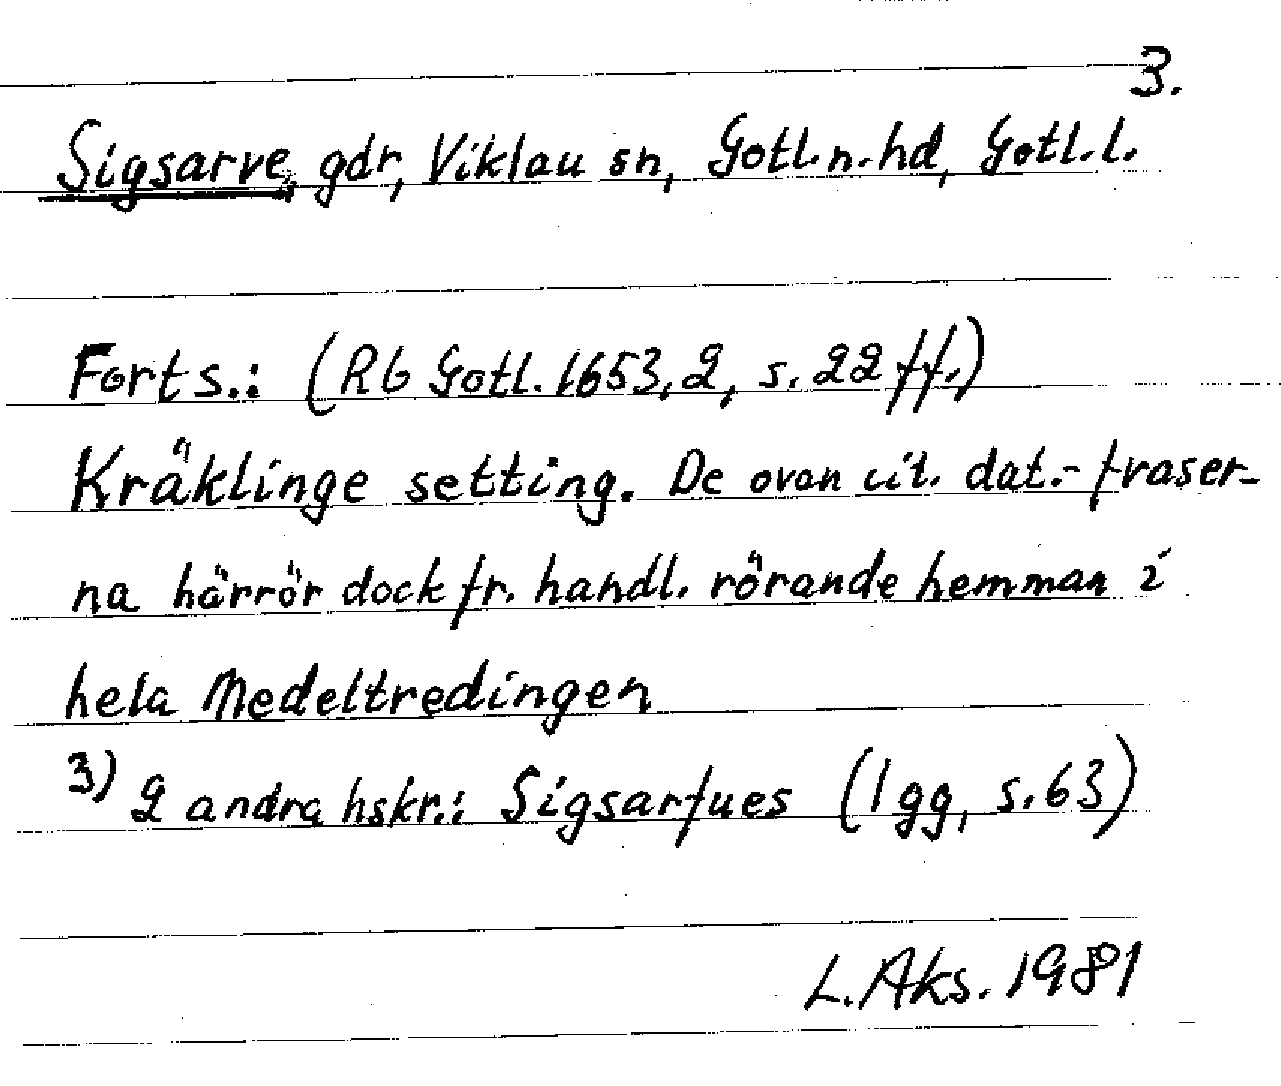 3.
Sigsarve, gdr, Viklau sn, Gotl.n.hd, Gotl.l.
Forts.: (Rb Gotl. 1653, 2, s. 22 ff.)
Kräklinge setting. De ovan cit. dat.-fraser-
na härrör dock fr. handl. rörande hemman i
hela Medeltredingen
3) 2 andra hskr.: Sigsarfues (1 gg, s. 63)
L. Aks. 1981